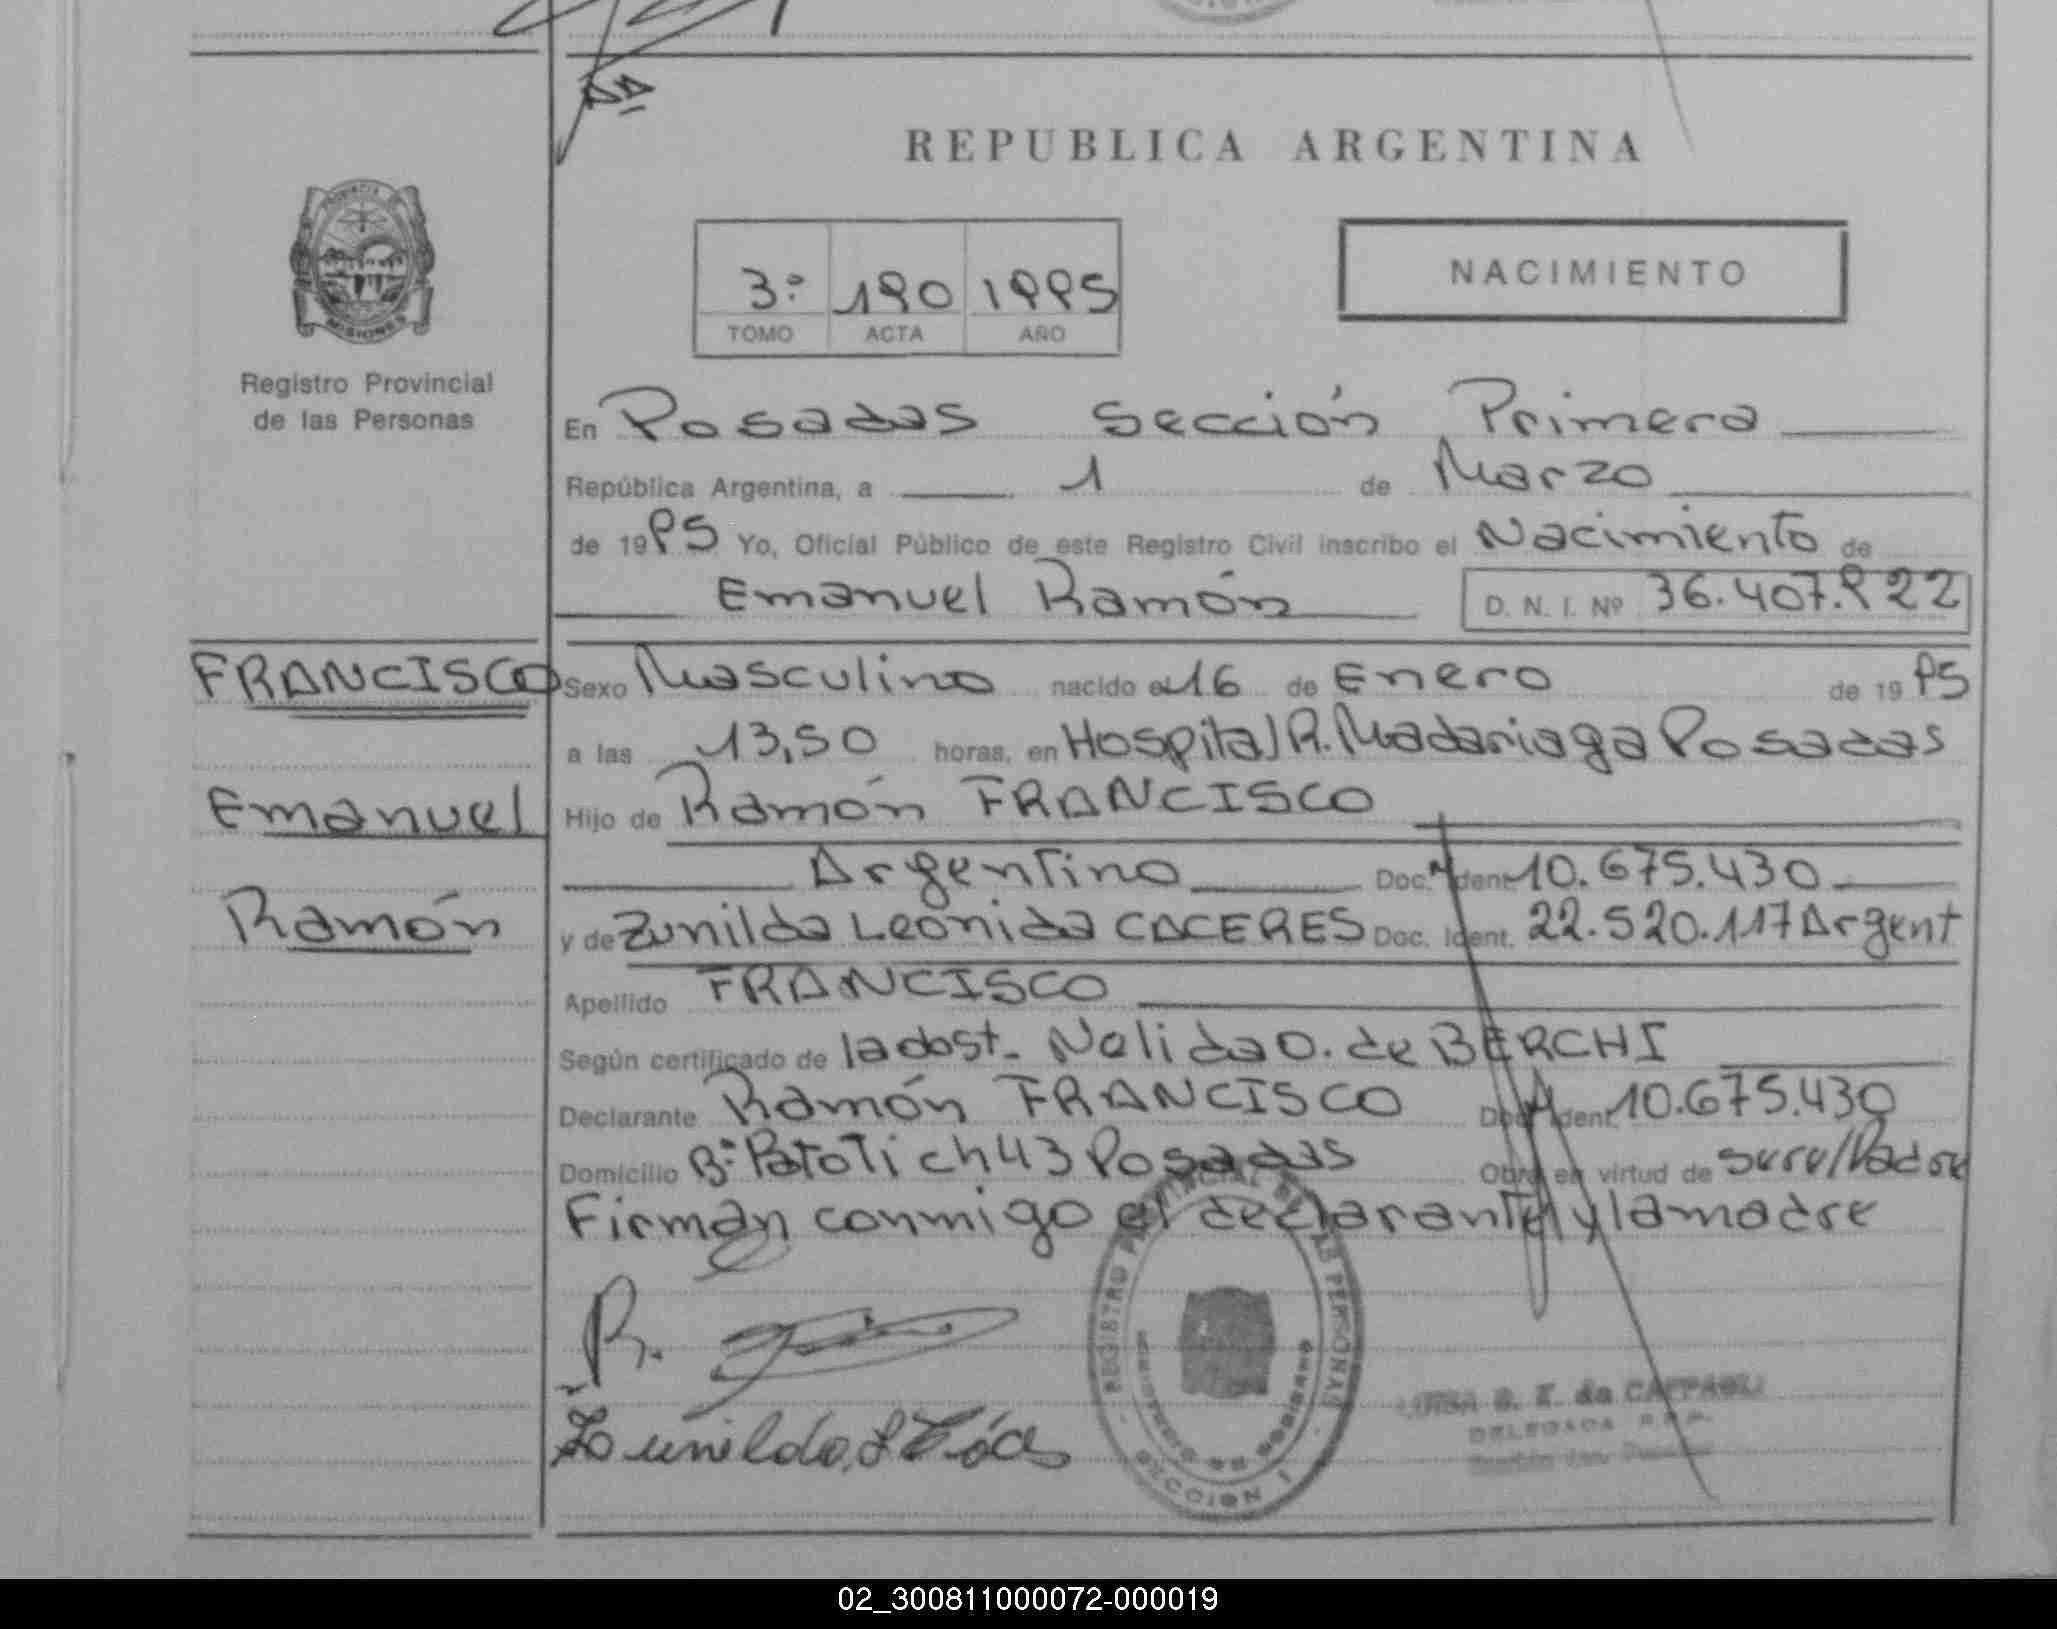 REPUBLICA ARGENTINA
MISIONES
Registro Provincial
de las Personas
3º 190 1995
TOMO ACTA AÑO
NACIMIENTO
En Posadas Sección Primera
República Argentina, a 1 de Marzo
de 1995 Yo, Oficial Público de este Registro Civil inscribo el Nacimiento de
Emanuel Ramón D. N. I. Nº 36.407.922
FRANCISCO
Emanuel
Ramón
Sexo Masculino nacido el 16 de Enero de 1995
a las 13,50 horas, en Hospital R. Madariaga Posadas
Hijo de Ramón FRANCISCO
Argentino Doc. Ident. 10.675.430
y de Zunilda Leonida CACERES Doc. Ident. 22.520.117 Argent
Apellido FRANCISCO
Según certificado de la obst. Nelida O. de BERCHI
Declarante Ramón FRANCISCO Doc. Ident. 10.675.430
Domicilio Bº Patotich 43 Posadas Obra en virtud de ser el Padre
Firman conmigo el declarante y la madre
REGISTRO PROVINCIAL DE LAS PERSONAS
SECCION 1
DELEGADA R.P.P.
02_300811000072-000019